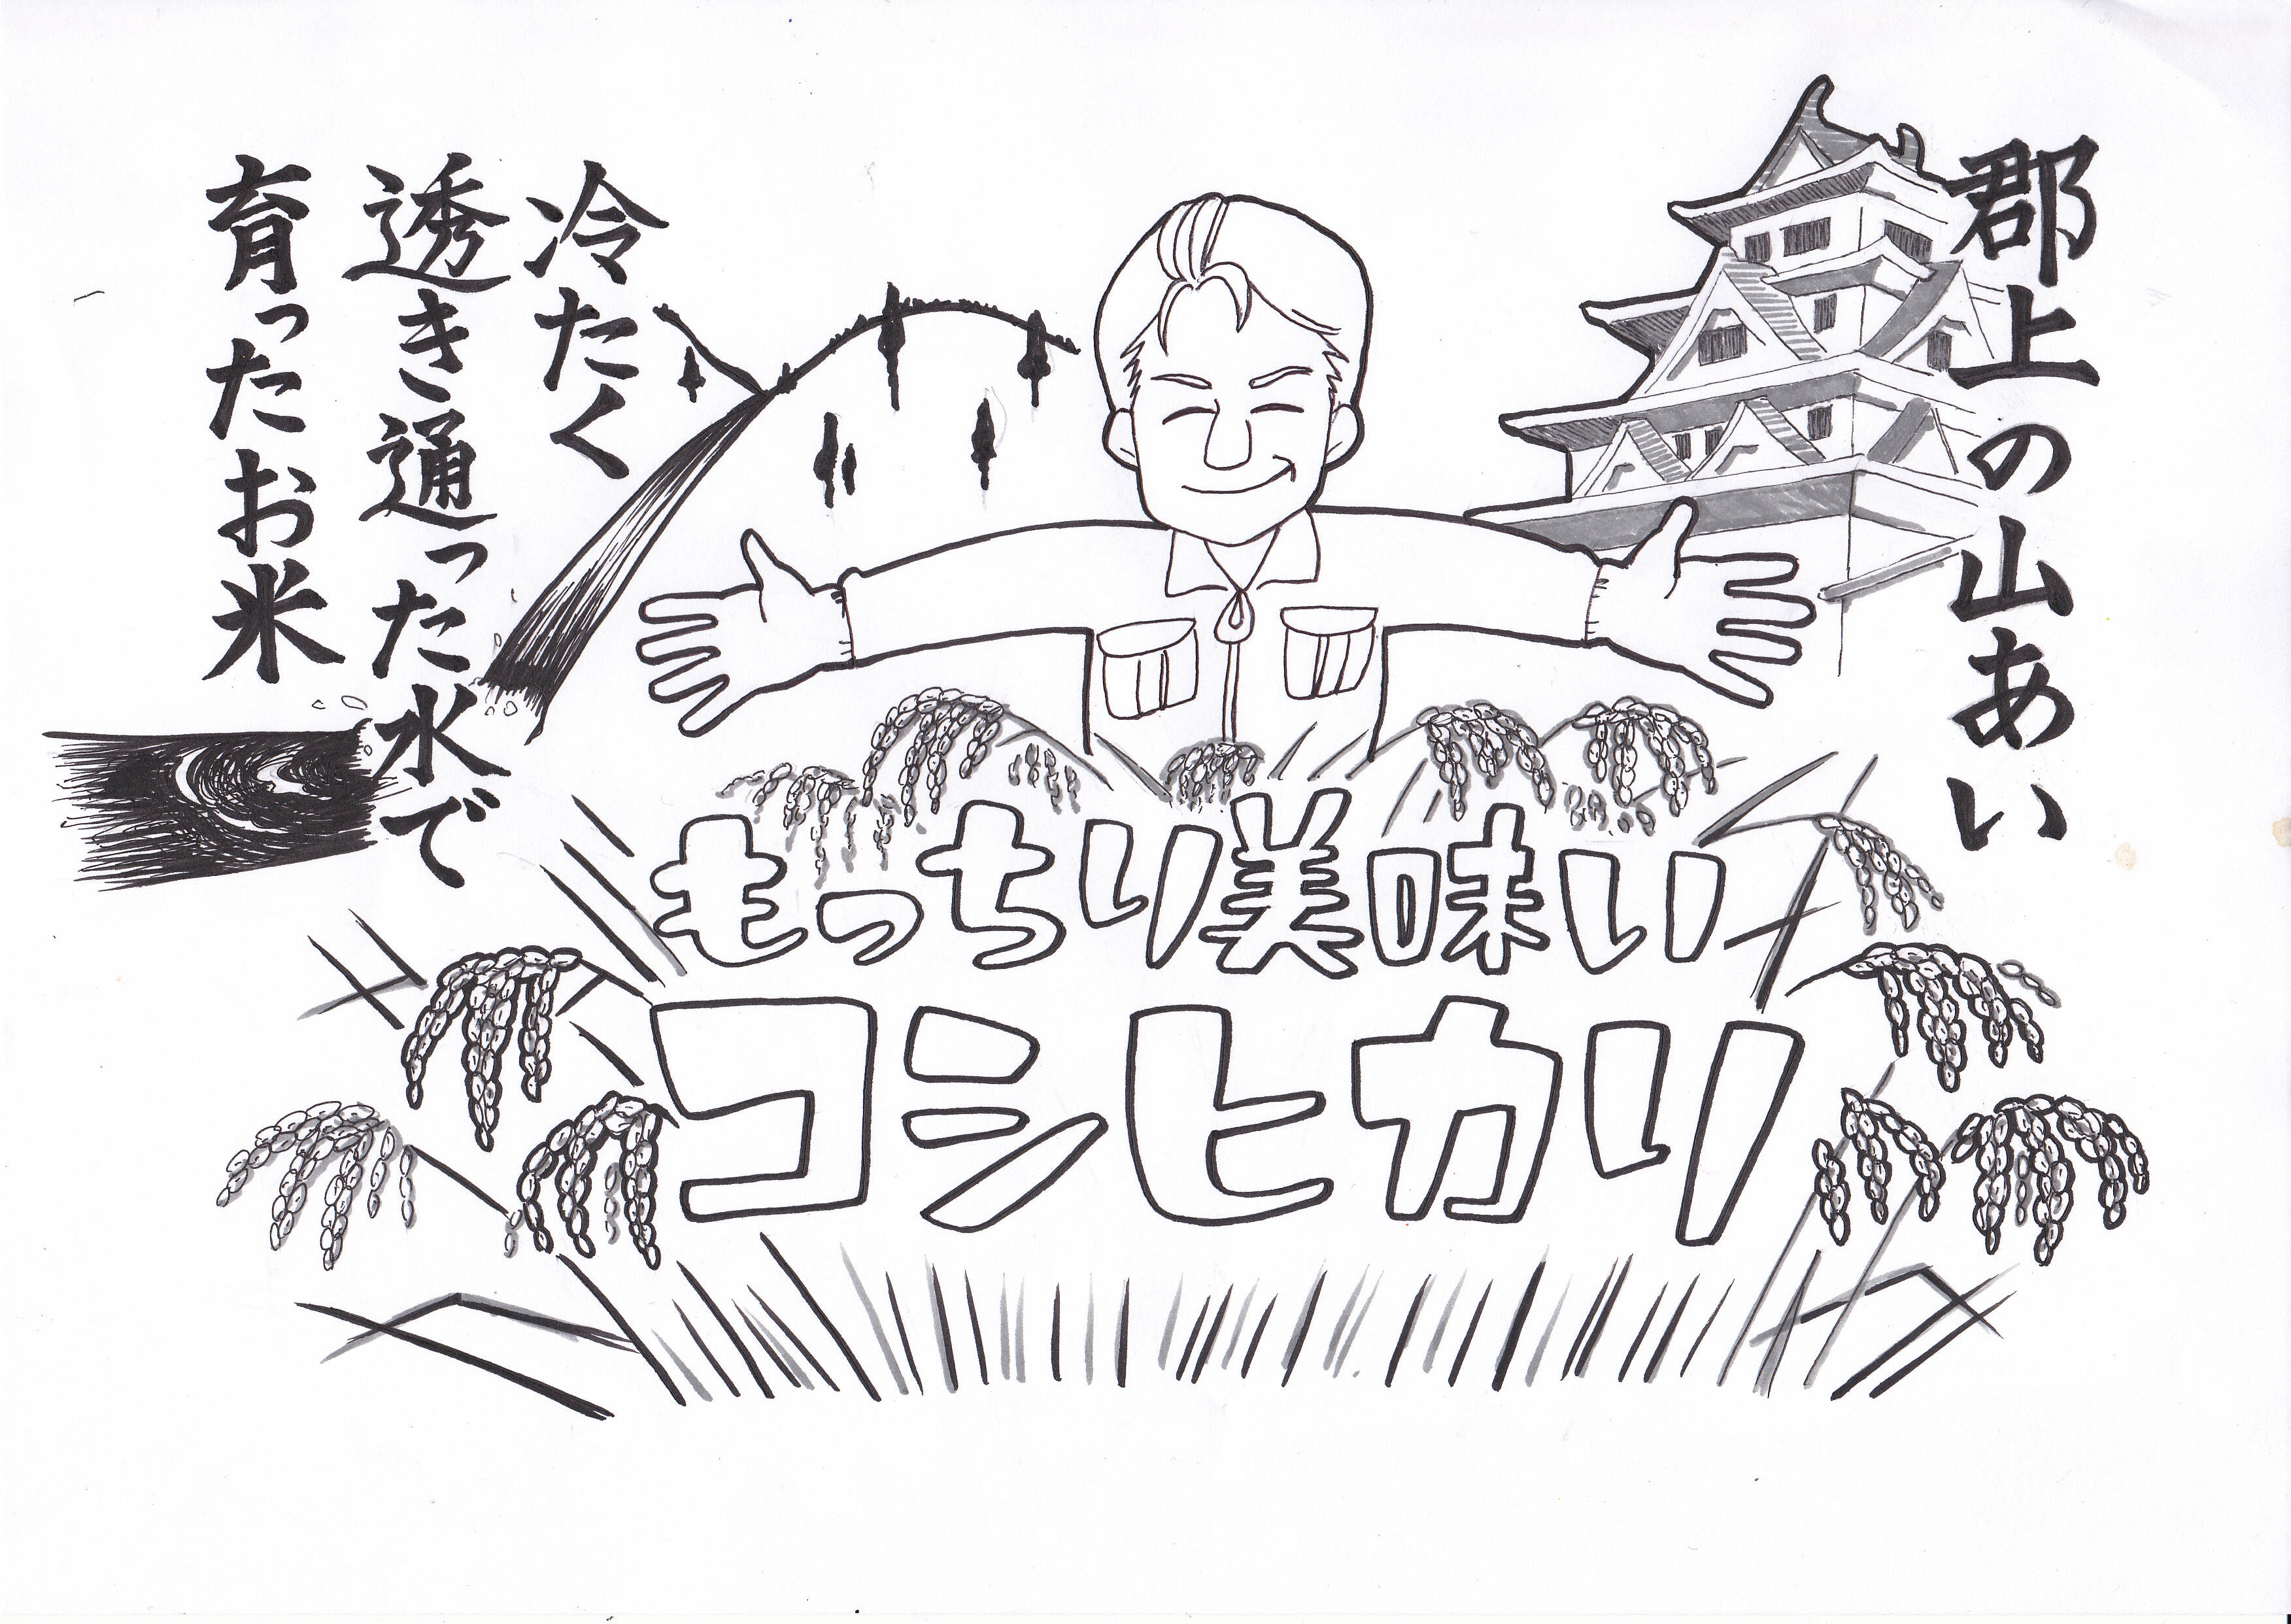 郡上の山あい
冷たく
透き通った水で
育ったお米
もっちり美味い
コシヒカリ